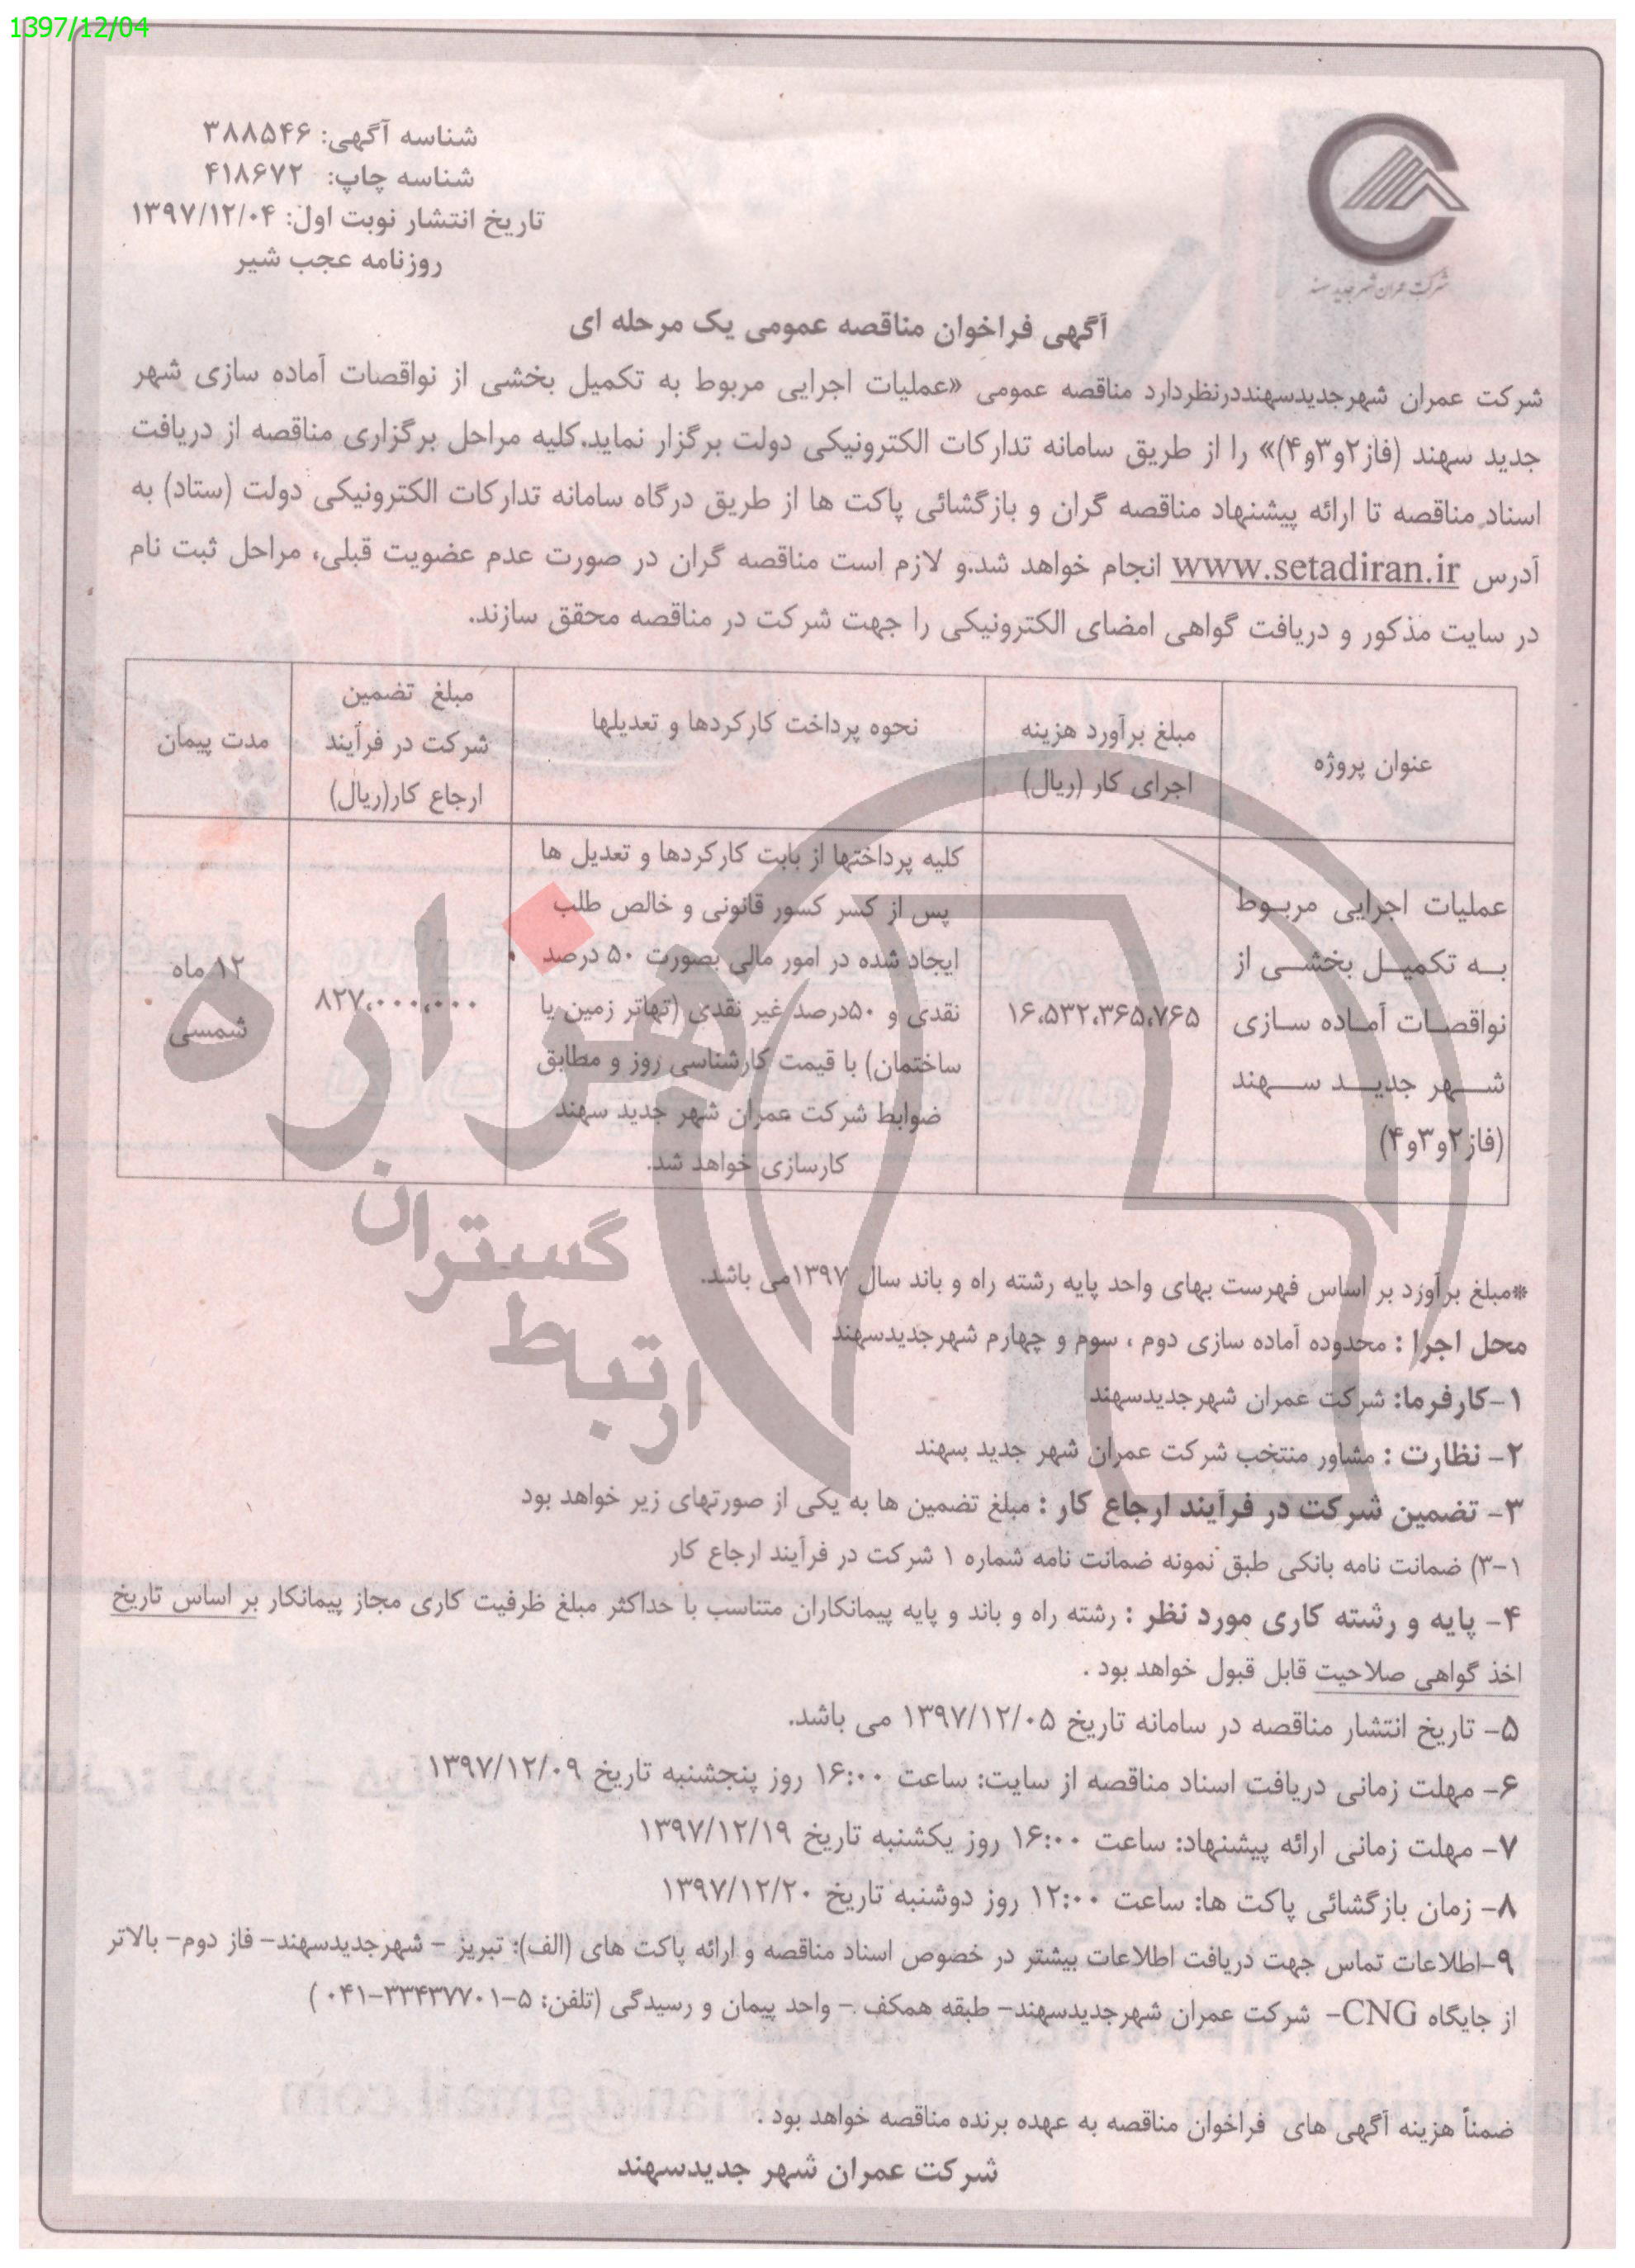 1397/12/04
شناسه آگهی: ۳۸۸۵۴۶
شناسه چاپ: ۴۱۸۶۷۲
تاریخ انتشار نوبت اول: ۱۳۹۷/۱۲/۰۴
روزنامه عجب شیر
شرکت عمران شهر جدید سهند
آگهی فراخوان مناقصه عمومی یک مرحله ای
شرکت عمران شهرجدیدسهنددرنظردارد مناقصه عمومی «عملیات اجرایی مربوط به تکمیل بخشی از نواقصات آماده سازی شهر
جدید سهند (فاز۲و۳و۴)» را از طریق سامانه تدارکات الکترونیکی دولت برگزار نماید.کلیه مراحل برگزاری مناقصه از دریافت
اسناد مناقصه تا ارائه پیشنهاد مناقصه گران و بازگشائی پاکت ها از طریق درگاه سامانه تدارکات الکترونیکی دولت (ستاد) به
آدرس www.setadiran.ir انجام خواهد شد.و لازم است مناقصه گران در صورت عدم عضویت قبلی، مراحل ثبت نام
در سایت مذکور و دریافت گواهی امضای الکترونیکی را جهت شرکت در مناقصه محقق سازند.
عنوان پروژه
مبلغ برآورد هزینه
اجرای کار (ریال)
نحوه پرداخت کارکردها و تعدیلها
مبلغ تضمین
شرکت در فرآیند
ارجاع کار(ریال)
مدت پیمان
عملیات اجرایی مربوط
به تکمیل بخشی از
نواقصات آماده سازی
شهر جدید سهند
(فاز۲و۳و۴)
۱۶،۵۳۲،۳۶۵،۷۶۵
کلیه پرداختها از بابت کارکردها و تعدیل ها
پس از کسر کسور قانونی و خالص طلب
ایجاد شده در امور مالی بصورت ۵۰ درصد
نقدی و ۵۰درصد غیر نقدی (تهاتر زمین یا
ساختمان) با قیمت کارشناسی روز و مطابق
ضوابط شرکت عمران شهر جدید سهند
کارسازی خواهد شد.
۸۲۷،۰۰۰،۰۰۰
۱۲ ماه
شمسی
هزاره
گستران
ارتباط
*مبلغ برآورد بر اساس فهرست بهای واحد پایه رشته راه و باند سال ۱۳۹۷می باشد.
محل اجرا : محدوده آماده سازی دوم ، سوم و چهارم شهرجدیدسهند
۱-کارفرما: شرکت عمران شهرجدیدسهند
۲- نظارت : مشاور منتخب شرکت عمران شهر جدید سهند
۳- تضمین شرکت در فرآیند ارجاع کار : مبلغ تضمین ها به یکی از صورتهای زیر خواهد بود
۳-۱) ضمانت نامه بانکی طبق نمونه ضمانت نامه شماره ۱ شرکت در فرآیند ارجاع کار
۴- پایه و رشته کاری مورد نظر : رشته راه و باند و پایه پیمانکاران متناسب با حداکثر مبلغ ظرفیت کاری مجاز پیمانکار بر اساس تاریخ
اخذ گواهی صلاحیت قابل قبول خواهد بود .
۵- تاریخ انتشار مناقصه در سامانه تاریخ ۱۳۹۷/۱۲/۰۵ می باشد.
۶- مهلت زمانی دریافت اسناد مناقصه از سایت: ساعت ۱۶:۰۰ روز پنجشنبه تاریخ ۱۳۹۷/۱۲/۰۹
۷- مهلت زمانی ارائه پیشنهاد: ساعت ۱۶:۰۰ روز یکشنبه تاریخ ۱۳۹۷/۱۲/۱۹
۸- زمان بازگشائی پاکت ها: ساعت ۱۲:۰۰ روز دوشنبه تاریخ ۱۳۹۷/۱۲/۲۰
۹-اطلاعات تماس جهت دریافت اطلاعات بیشتر در خصوص اسناد مناقصه و ارائه پاکت های (الف): تبریز - شهرجدیدسهند- فاز دوم- بالاتر
از جایگاه CNG- شرکت عمران شهرجدیدسهند- طبقه همکف - واحد پیمان و رسیدگی (تلفن: ۵-۳۳۴۳۷۷۰۱-۰۴۱ )
ضمناً هزینه آگهی های فراخوان مناقصه به عهده برنده مناقصه خواهد بود .
شرکت عمران شهر جدیدسهند